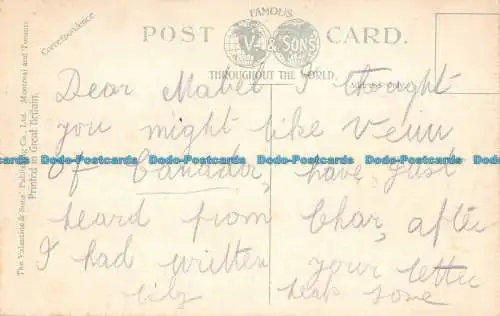 FAMOUS
POST CARD.
V & SONS
THROUGHOUT THE WORLD.
Correspondence
The Valentine & Sons' Publishing Co., Ltd. Montreal and Toronto
Printed in Great Britain.
Dear Mabel I thought
you might like View
Of Canada, have just
heard from Char, after
I had written your letter
love
Dodo-Postcards Dodo-Postcards Dodo-Postcards Dodo-Postcards
Dodo-Postcards Dodo-Postcards Dodo-Postcards